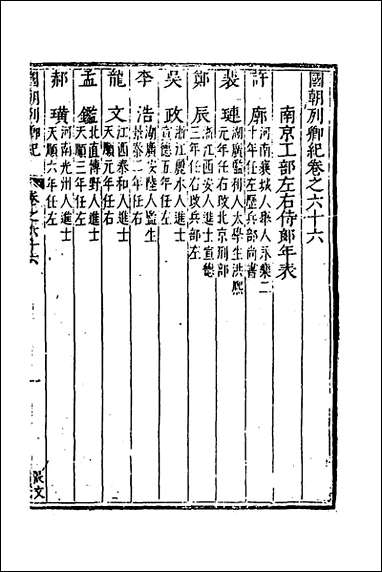 國朝列卿紀卷之六十六
南京工部左右侍郎年表
許廓 河南襄城人舉人永樂二
十年任左歷兵部尚書
裴璉 湖廣監利人太學生洪熙
元年任右改北京刑部
鄭辰 浙江西安人進士宣德
三年任右改兵部左
吳政 浙江麗水人進士
宣德五年任右
李浩 湖廣安陸人監生
景泰二年任右
龍文 江西泰和人進士
天順元年任右
孟鑑 北直博野人進士
天順三年任左
郝璜 河南光州人進士
天順六年任左
國朝列卿紀 卷之六十六 一